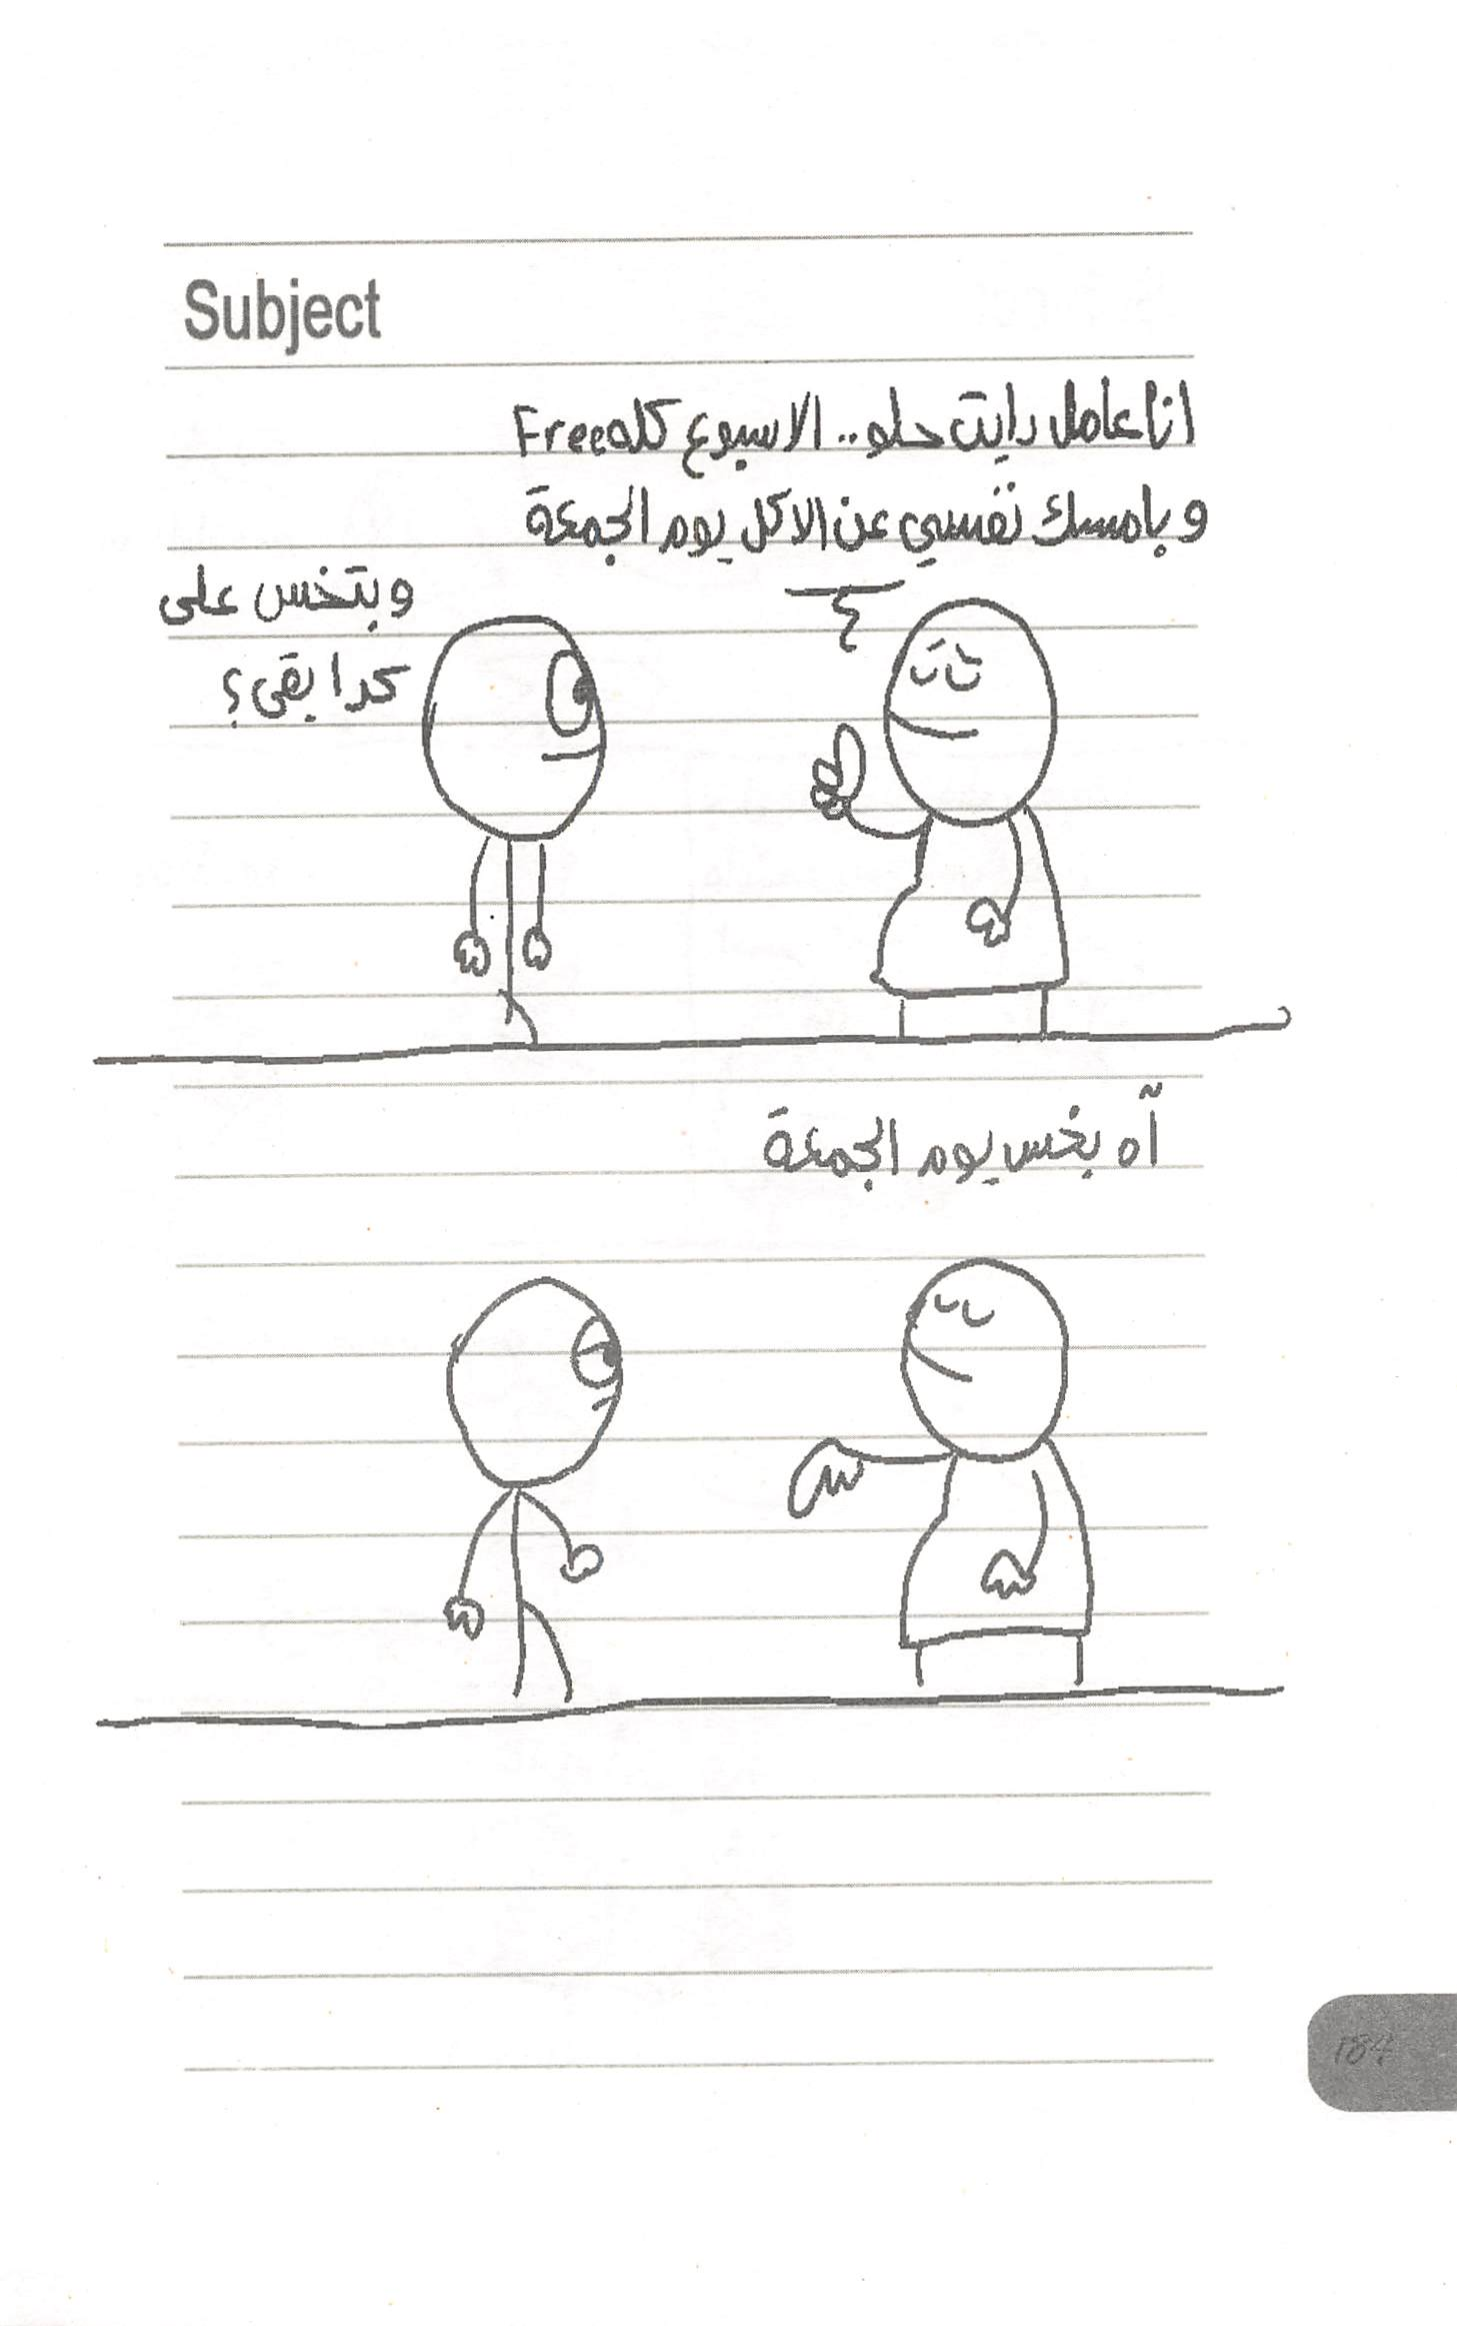 Subject
انا عامل دايت حلو.. الاسبوع كله Free
وبامسك نفسي عن الاكل يوم الجمعة
وبتخس على
كدا بقى؟
آه بخس يوم الجمعة
184